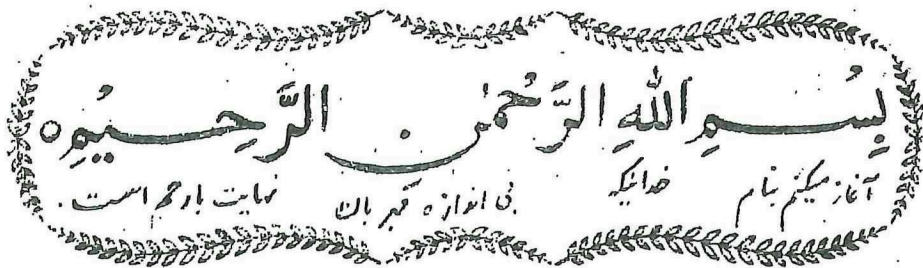 بِسْمِ اللهِ الرَّحْمٰنِ الرَّحِيْمِ
آغاز میکنم بنام خدائیکه بی اندازه مهربان نهایت بارحم است.